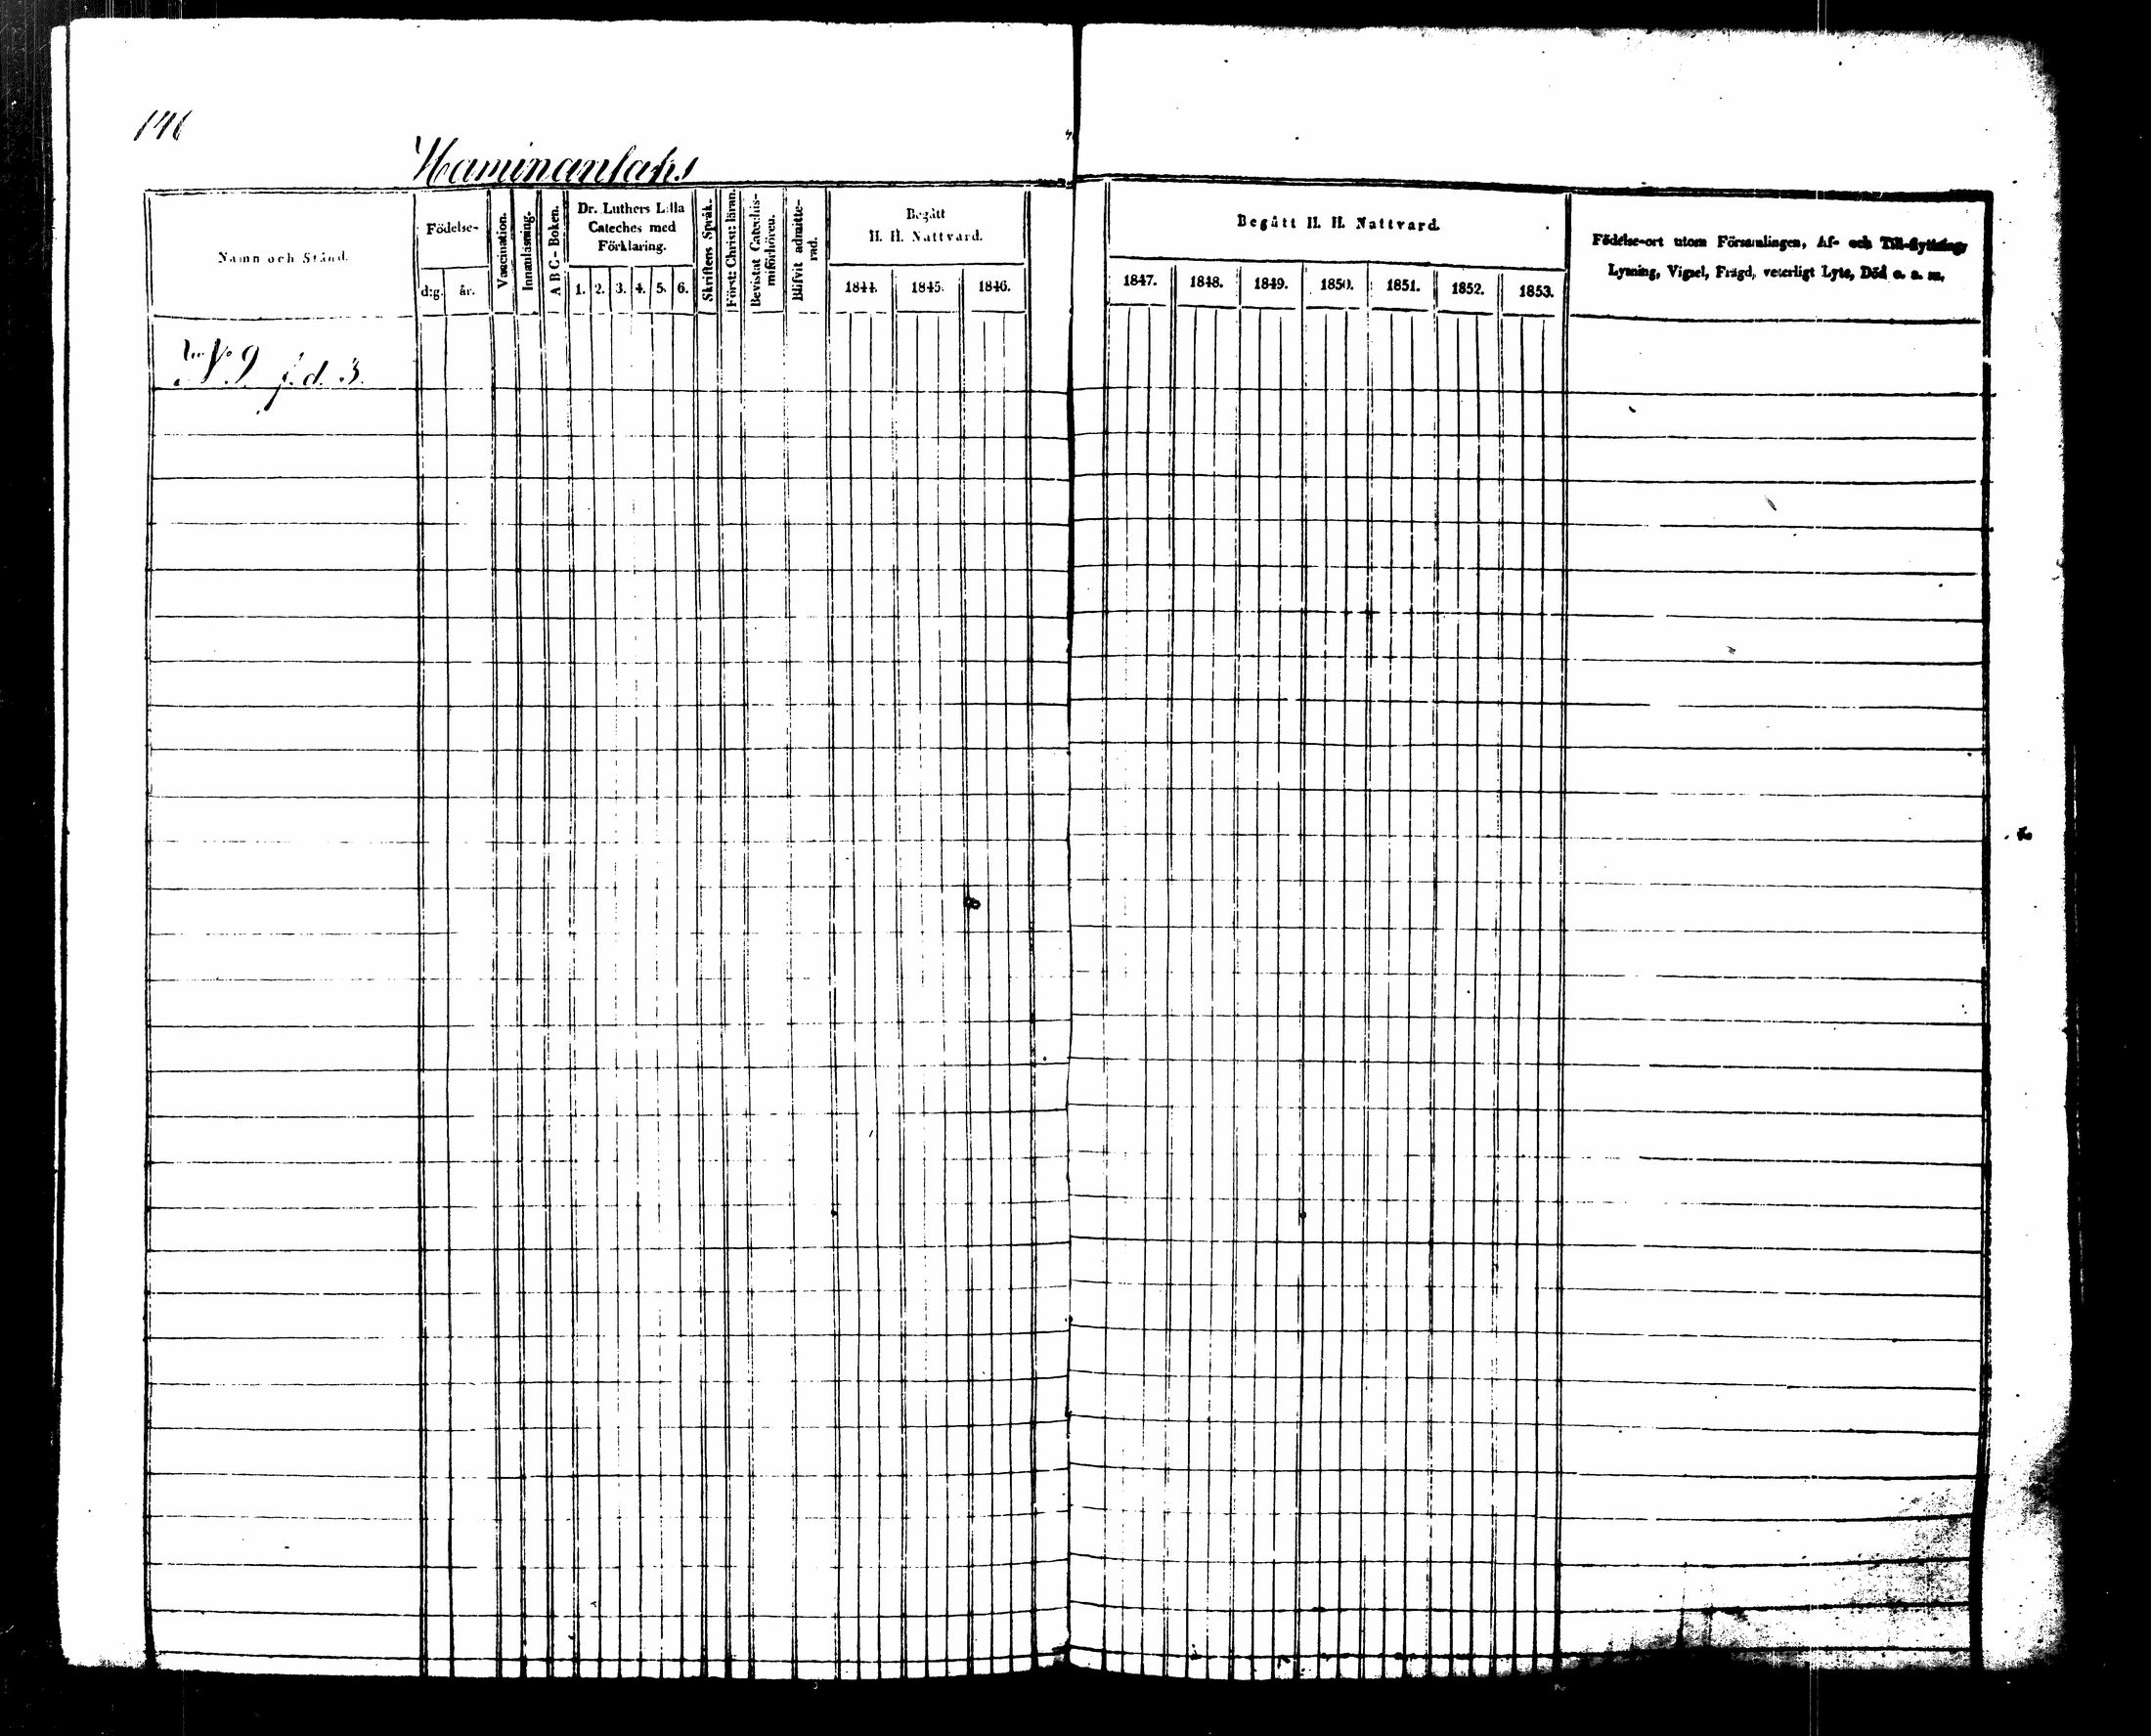 146
Haminanlaks
Namn och Stånd.
Födelse-
d:g. år.
Vaccination.
Innanläsning.
A B C-Boken.
Dr. Luthers Lilla
Cateches med
Förklaring.
1. 2. 3. 4. 5. 6.
Skriftens Språk.
Först: Christ: läran.
Bevistat Catechis-
miförhören.
Blifvit admitte-
rad.
Begått
H. H. Nattvard.
1844. 1845. 1846.
Begått H. H. Nattvard.
1847. 1848. 1849. 1850. 1851. 1852. 1853.
Födelse-ort utom Församlingen, Af- och Till-flyttning,
Lysning, Vigsel, Frägd, veterligt Lyte, Död o. s. m.
No 9 f.d. 3.